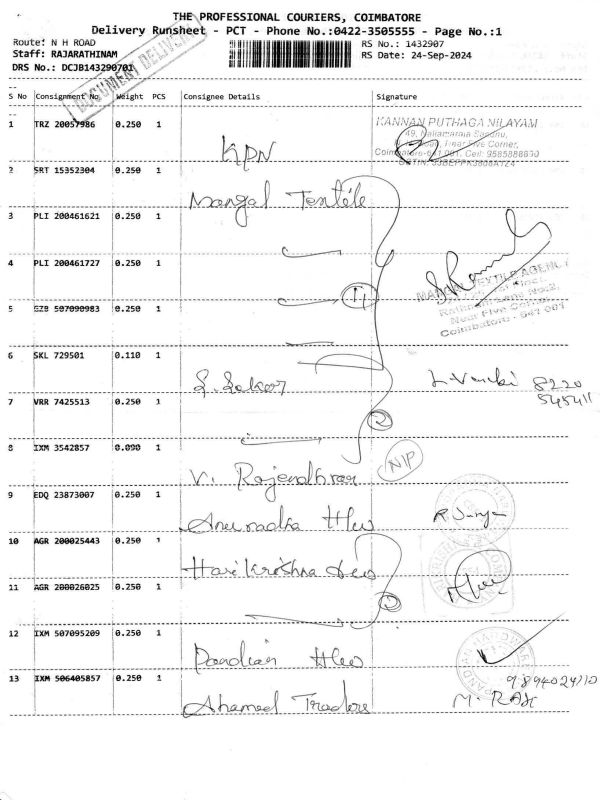 THE PROFESSIONAL COURIERS, COIMBATORE
Delivery Runsheet - PCT - Phone No.:0422-3505555 - Page No.:1
Route: N H ROAD
RS No.: 1432907
Staff: RAJARATHINAM
RS Date: 24-Sep-2024
DRS No.: DCJB143290701
DOCUMENT DELIVERY
S No Consignment No. Weight PCS Consignee Details Signature
1 TRZ 20057986 0.250 1 KPN
KANNAN PUTHAGA NILAYAM
2 SRT 15352304 0.250 1 Mangal Textile
3 PLI 200461621 0.250 1
4 PLI 200461727 0.250 1
(4)
TEXTILE AGENCY
Near Five Corner
Coimbatore - 641 001
5 EZB 507090983 0.250 1
6 SKL 729501 0.110 1 S. Sekar
8220
545411
7 VRR 7425513 0.250 1
(2)
8 IXM 3542857 0.090 1 V. Rajendhran
NIP
9 EDQ 23873007 0.250 1 Anuradha Hw
R. Surya
10 AGR 200025443 0.250 1 Harikrishna
11 AGR 200026025 0.250 1
(2)
12 IXM 507095209 0.250 1 Pandian Hw
13 IXM 506405857 0.250 1 Ahamed Traders
M. RAJ